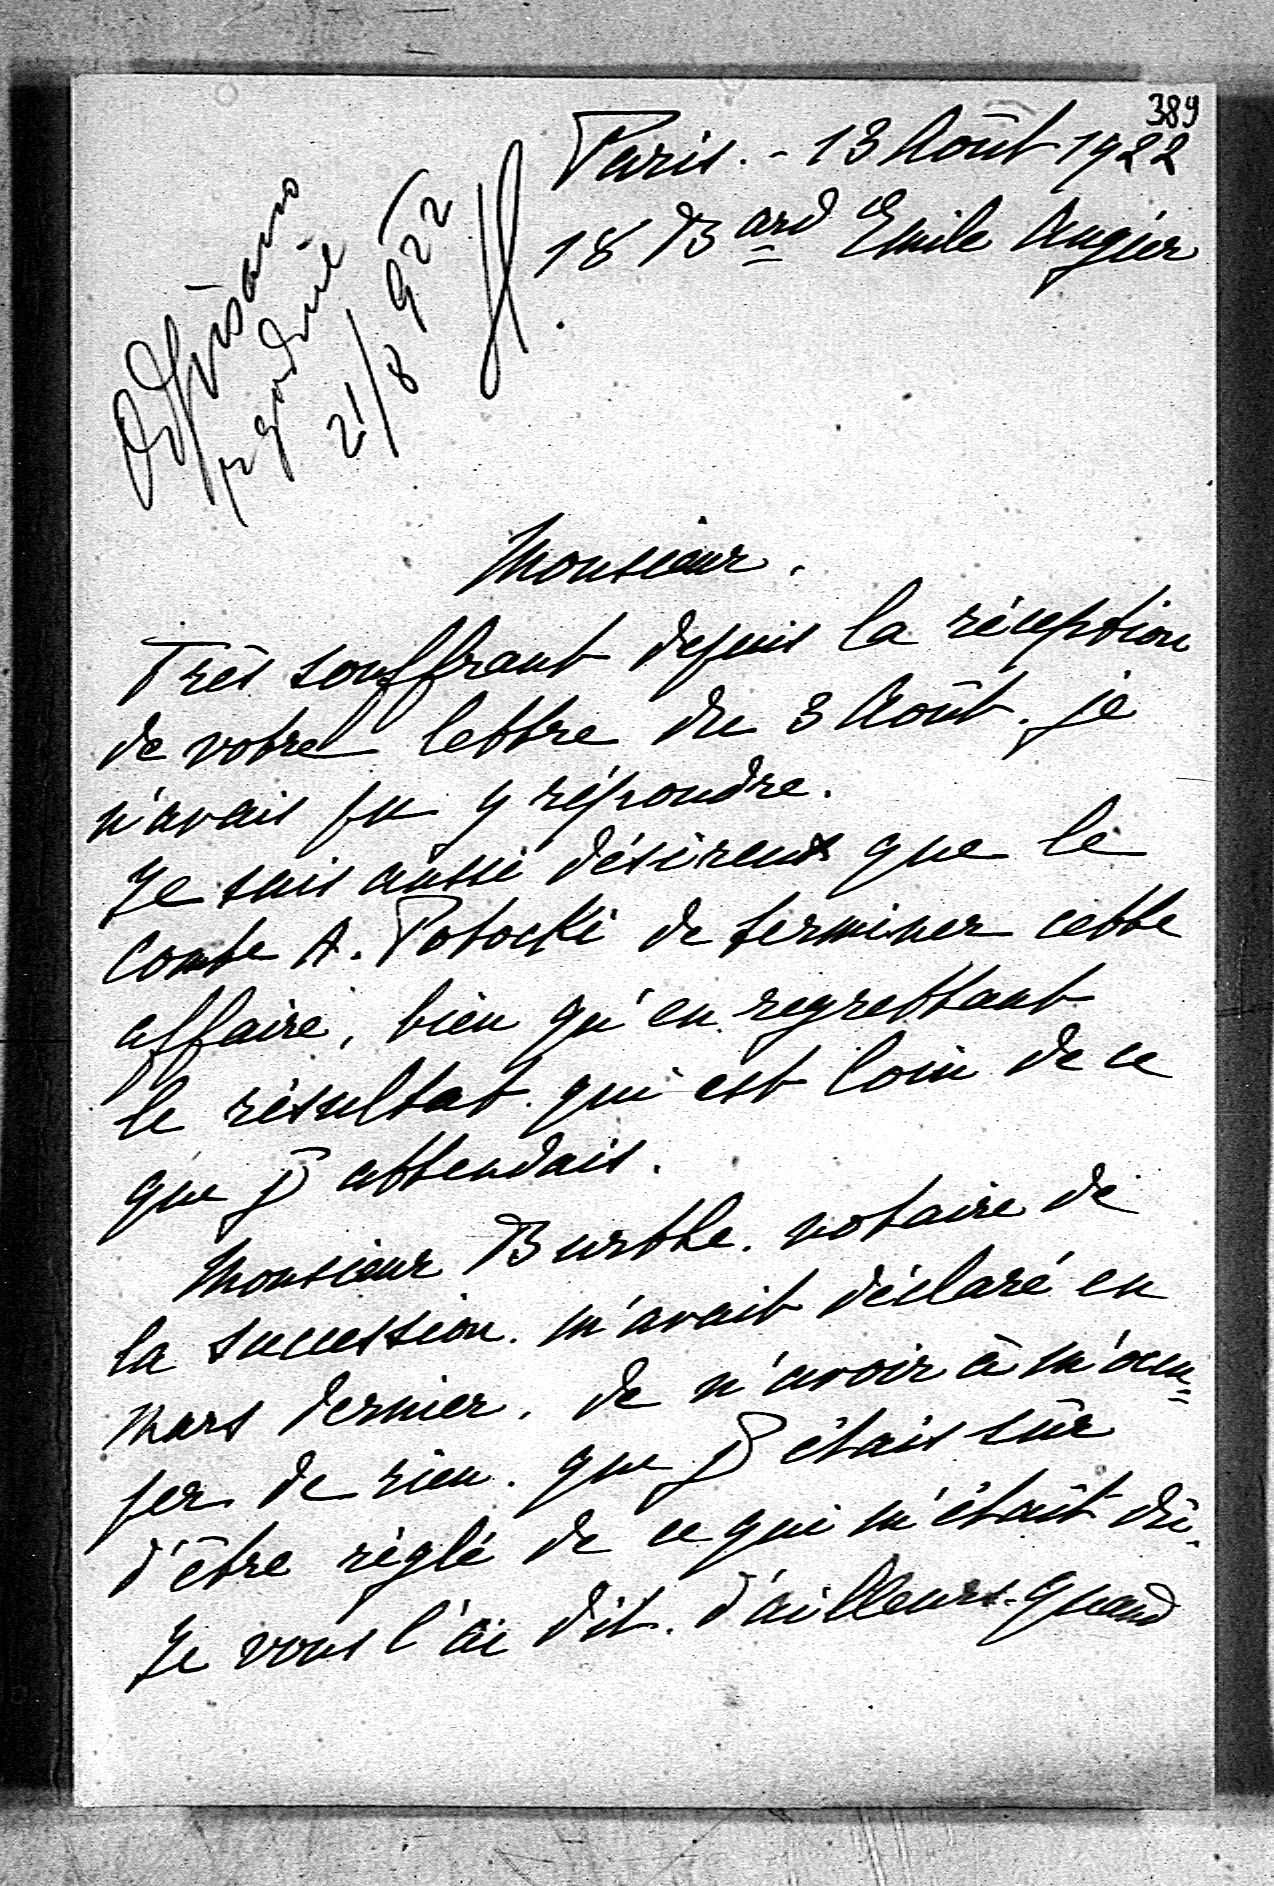 389
Paris. - 13 Août 1922
18 Bard Emile Augier
Odpisano
21/8 922
Monsieur.
Très souffrant depuis la réception
de votre lettre du 3 Août. je
n'avais pu y répondre.
Je suis aussi désireux que le
Comte A. Potocki de terminer cette
affaire, bien qu'en regrettant
le résultat. qui est loin de ce
que j'attendais.
Monsieur Burthe. notaire de
la succession. m'avait déclaré en
Mars dernier. de n'avoir à m'occu=
per de rien. que j'étais sûr
d'être réglé de ce qui m'était dû.
Je vous l'ai dit. d'ailleurs. quand